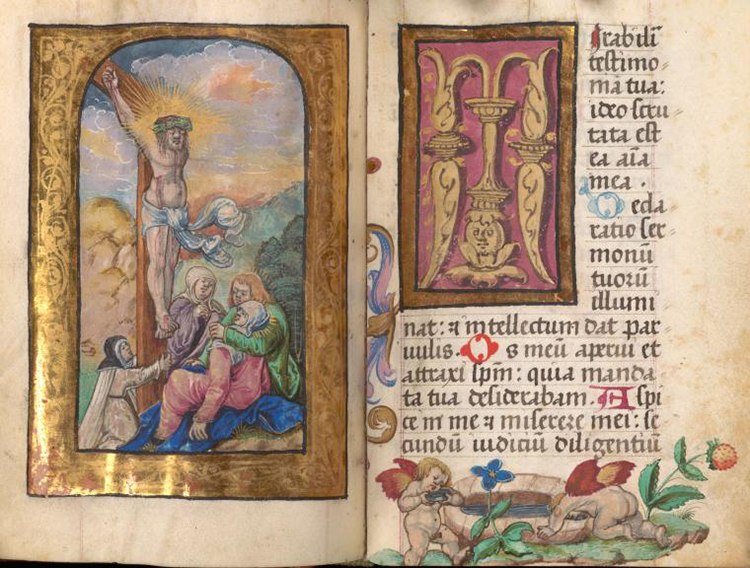 Mirabili
testimo
nia tua:
ideo scru
tata est
ea aīa
mea .
Decla
ratio ser
monū
tuorū
illumi
nat: ⁊ intellectum dat par
uulis. Os meū aperui et
attraxi spm̄: quia manda
ta tua desiderabam. Aspi
ce in me ⁊ miserere mei: se
cundū iudiciū diligentiū